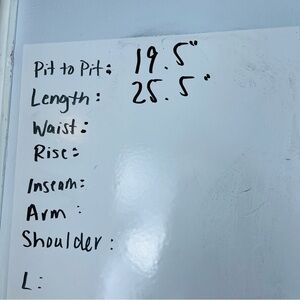 Pit to Pit: 19.5"
Length: 25.5"
Waist:
Rise:
Inseam:
Arm:
Shoulder:
L: